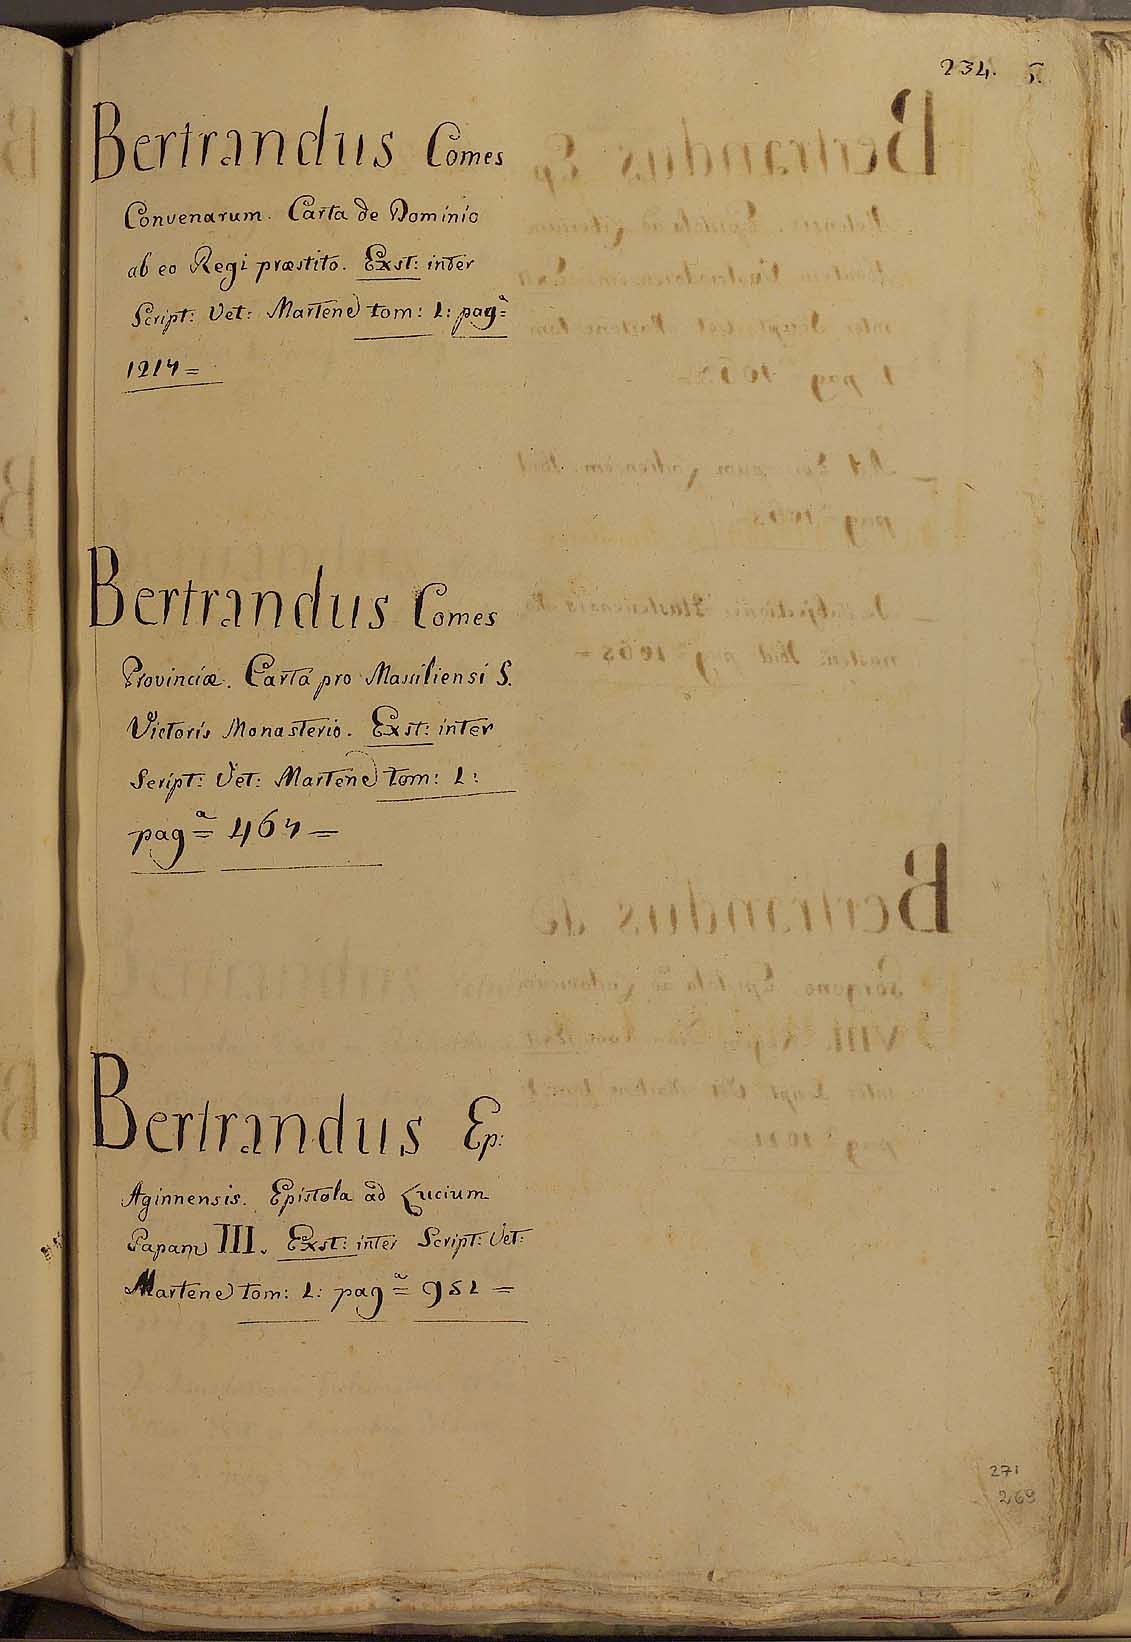 234. 5.
Bertrandus Comes
Convenarum. Carta de Dominio
ab eo Regi præstito. Exst: inter
Script: Vet: Martene tom: 1: pagª=
1214=
Bertrandus Comes
Provinciæ. Carta pro Massiliensi S.
Victoris Monasterio. Exst: inter
Script: Vet: Martene tom: 1:
pagª= 464=
Bertrandus Ep:
Aginnensis. Epistola ad Lucium
Papam III. Exst: inter Script: Vet:
Martene tom: 1: pagª= 981=
271
269